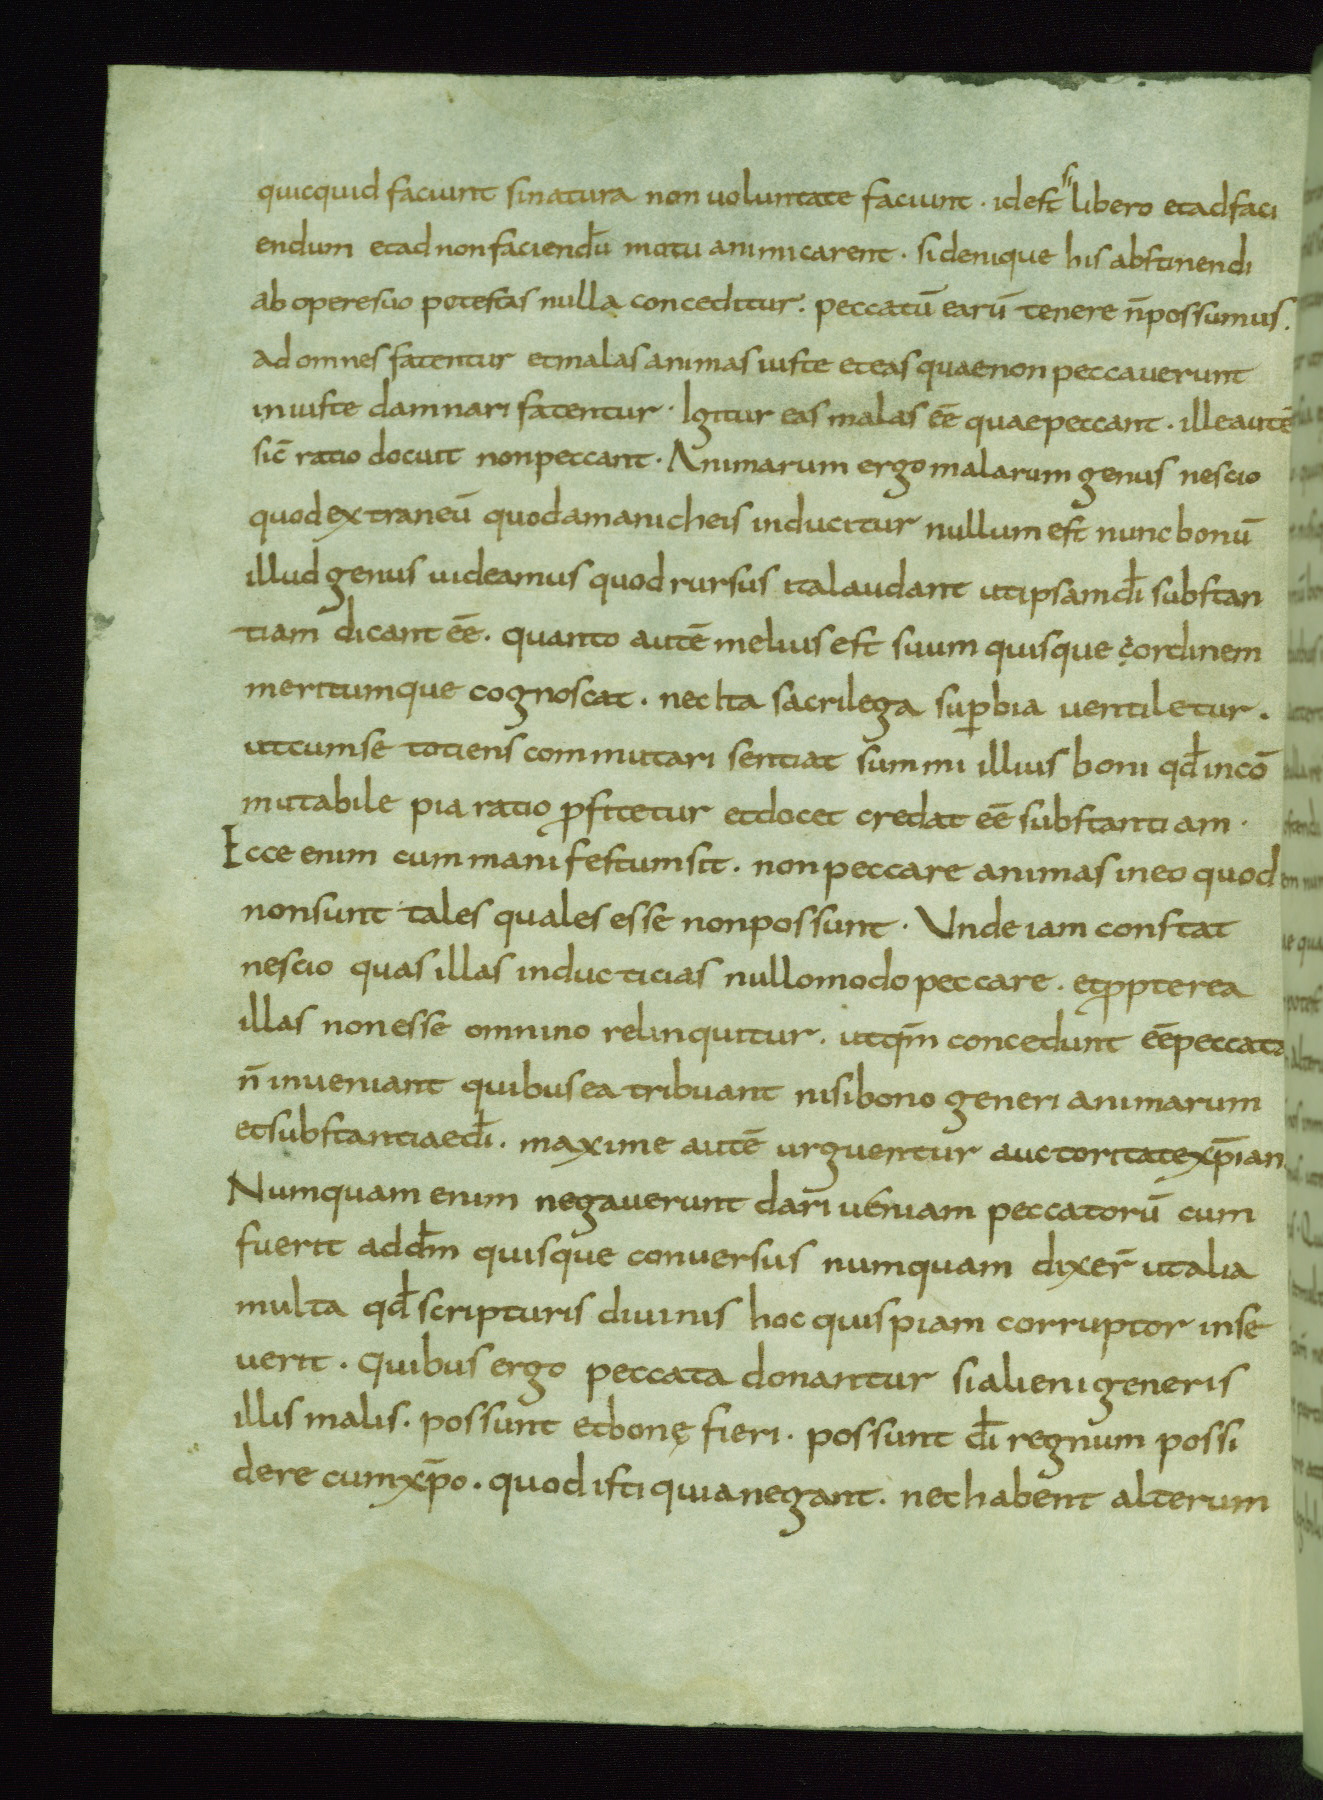 quicquid faciunt si natura non uoluntate faciunt · id est si libero et ad faci
endum et ad non faciendū motu animi carent · si denique his abstinendi
ab opere suo potestas nulla conceditur · peccatū earū tenere n̄ possumus ·
ad omnes fatentur et malas animas iuste et eas quae non peccauerunt
iniuste damnari fatentur · Igitur eas malas eē quae peccant · ille autē
sic̄ ratio docuit non peccant · Animarum ergo malarum genus nescio
quod extraneū quod a manicheis inducitur nullum est nunc bonū
illud genus uideamus quod rursus ita laudant ut ipsam dī substan
tiam dicant eē · quanto autē melius est suum quisque çordinem
meritumque cognoscat · nec Ita sacrilega sup̱bia uentiletur ·
ut cum se totiens commutari sentiat summi illius boni qd̄ incō
mutabile pia ratio ꝓfitetur et docet credat eē substantiam ·
Ecce enim cum manifestum sit · non peccare animas in eo quod
non sunt tales quales esse non possunt · Unde iam constat
nescio quas illas inducticias nullo modo peccare · et ꝓpterea
illas non esse omnino relinquitur · ut qm̄ concedunt eē peccata
n̄ inueniant quibus ea tribuant nisi bono generi animarum
et substantiae dī · maxime autē urguentur auctoritate xp̄ian
Numquam enim negauerunt dari ueniam peccatorū cum
fuerit ad dm̄ quisque conuersus numquam dixer̄ ut alia
multa qd̄ scripturis diuinis hoc quispiam corruptor inse
uerit · quibus ergo peccata donantur si alieni generis
illis malis · possunt et bonę fieri · possunt dī regnum possi
dere cum xp̄o · quod isti quia negant · nec habent alterum